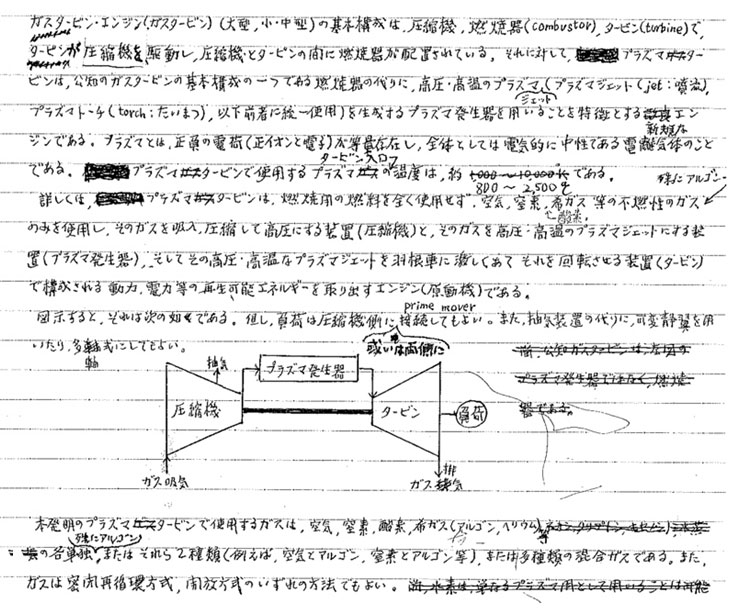 ガスタービン・エンジン(ガスタービン)(大型,小・中型)の基本構成は,圧縮機,燃焼器(combustor),タービン(turbine)で,
タービンが圧縮機を駆動し,圧縮機とタービンの間に燃焼器が配置されている。それに対して,プラズマガスター
ビンは,公知のガスタービンの基本構成の一つである燃焼器の代りに,高圧・高温のプラズマジェット(プラズマジェット(jet:噴流),
プラズマトーチ(torch:たいまつ),以下前者に統一使用)を生成するプラズマ発生器を用いることを特徴とする新規なエン
ジンである。プラズマとは,正負の電荷(正イオンと電子)が等量存在し,全体としては電気的に中性である電離気体のこと
である。プラズマガスタービンで使用するプラズマガスのタービン入口温度は,約1000〜10,000K
800〜2,500℃である。
詳しくは,プラズマガスタービンは,燃焼用の燃料を全く使用せず,空気,窒素,酸素,希ガス(特にアルゴン)等の不燃性のガス
のみを使用し,そのガスを吸入,圧縮して高圧にする装置(圧縮機)と,そのガスを高圧・高温のプラズマジェットにする装
置(プラズマ発生器),そしてその高圧・高温なプラズマジェットを羽根車に激しくあてそれを回転させる装置(タービン)
で構成される動力,電力等の再生可能エネルギーを取り出すエンジン(原動機)である。
prime mover
図示すると,それは次の如くである。但し,負荷は圧縮機側に或いは両側に接続してもよい。また,抽気装置の代りに,可変静翼を用
いたり,多軸式にしてもよい。
軸
尚,公知ガスタービンは,左図の
プラズマ発生器ではなく,燃焼
器である。
抽気
プラズマ発生器
圧縮機
タービン
負荷
ガス吸気
ガス排気
本発明のプラズマガスタービンで使用するガスは,空気,窒素,酸素,希ガス(アルゴン,ヘリウム)等
の各単独(特にアルゴン),またはそれら2種類(例えば,空気とアルゴン,窒素とアルゴン等),または多種類の混合ガスである。また,
ガスは密閉再循環方式,開放方式のいずれの方法でもよい。尚,水素は,単なるプラズマ用として用いることは可能